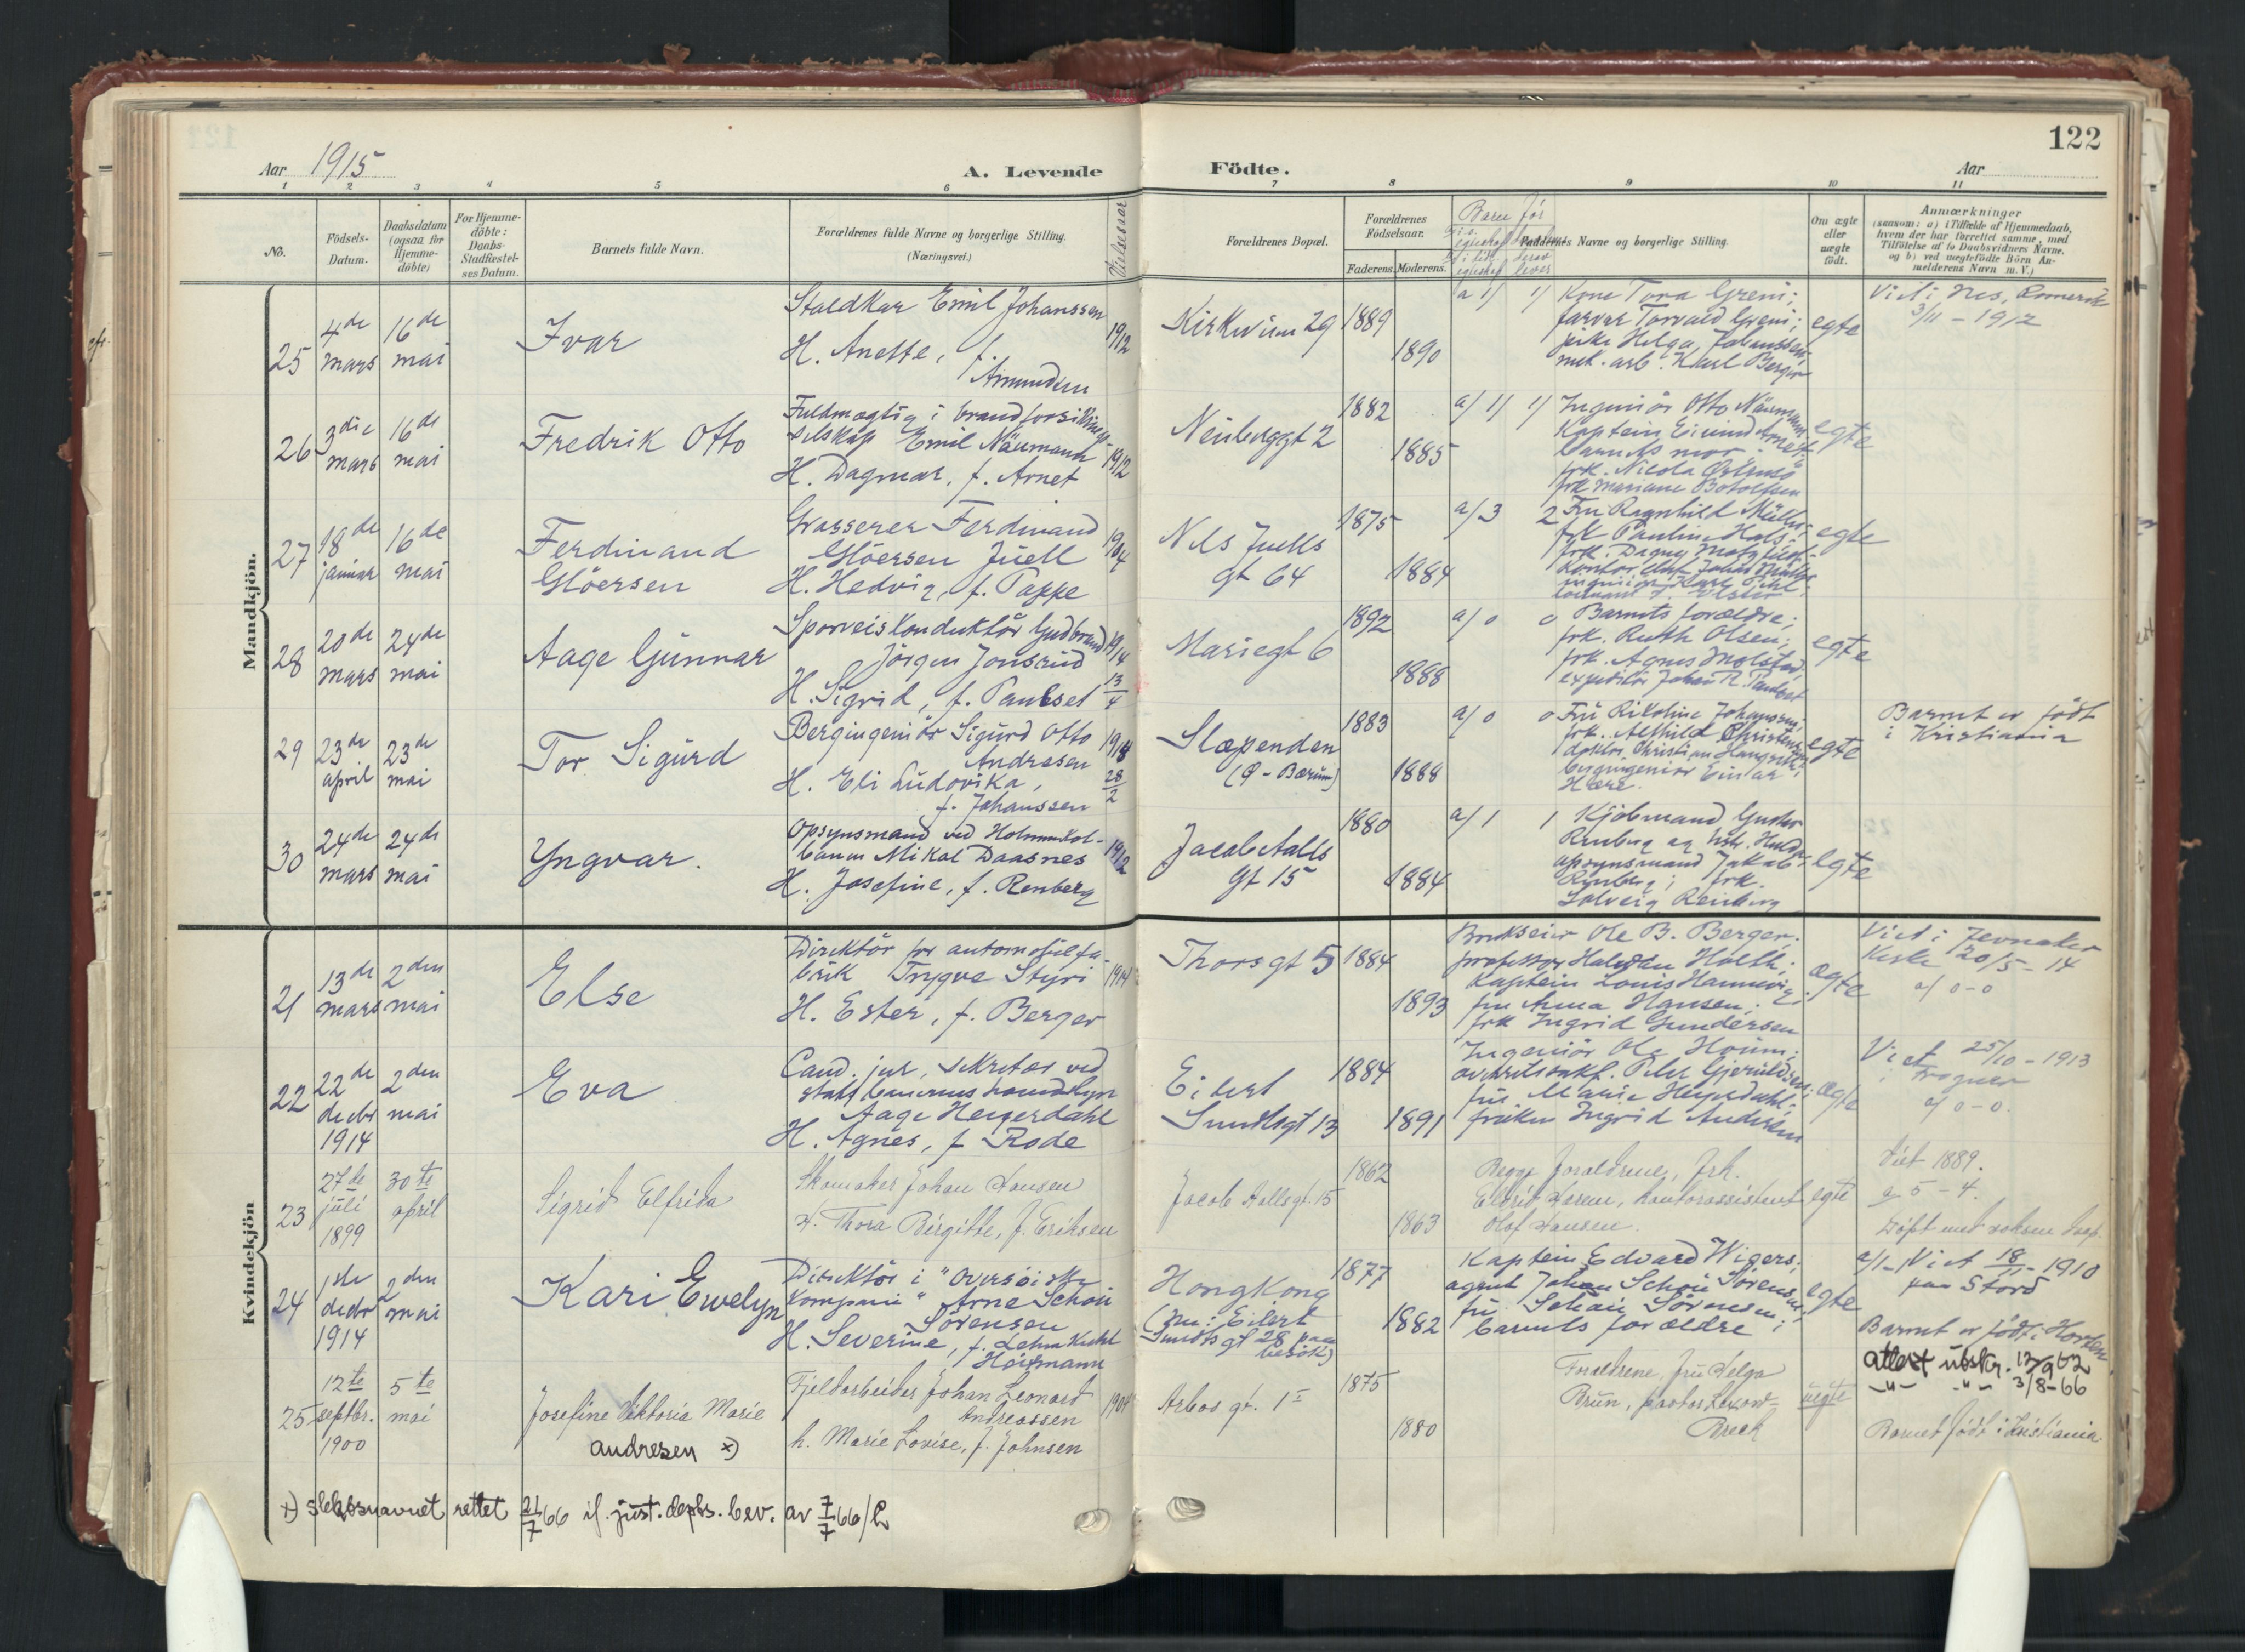 122
Aar 1915
A. Levende Födte.
Aar
1 2 3 4 5 6 7 8 9 10 11
No.
Födsels-Datum.
Daabsdatum (ogsaa for Hjemme-döbte)
For Hjemme-döbte: Daabs-Stadfæstel-ses Datum.
Barnets fulde Navn.
Forældrenes fulde Navne og borgerlige Stilling. (Næringsvei.)
Vielsesaar
Forældrenes Bopæl.
Forældrenes Födselsaar.
Faderens. Moderens.
Faddernes Navne og borgerlige Stilling.
Om ægte eller uægte födt.
Anmærkninger
(saasom: a) i Tilfælde af Hjemmedaab, hvem der har forrettet samme, med Tilföielse af to Daabsvidners Navne, og b) ved uægtefödte Börn An-melderens Navn m. V.)
Mandkjön.
25 4de mars 16de mai
Ivar
Staldkar Emil Johanssen
H. Anette, f. Amundsen
1912
Kirkeveien 29
1889
1890
a 1/ 1/
Kone Tora Greni;
farver Torvald Greni;
frk. Helga Johanssen;
mek. arb. Karl Berger
egte
Viet i Nes, Romerik
3/11 - 1912
26 3die mars 16de mai
Fredrik Otto
Fuldmægtig i brandforsikrings-
selskap Emil Näumann
H. Dagmar, f. Arnet
1912
Neuberggt 2
1882
1885
a/ 1/ 1/
Ingeniör Otto Näumann
Kaptein Eivind Arnet;
barnets mor;
frk. Mariane Botolfsen
egte
27 18de januar 16de mai
Ferdinand
Glöersen
Grosserer Ferdinand
Glöersen Juell
H. Hedvig, f. Pappe
1904
Nils Juells
gt 64
1875
1884
a/3 2
Fru Ragnhild Müller;
frk. Pauline Hals;
egte
28 20de mars 24de mai
Aage Gunnar
Sporveiskonduktör Gudbrand
Jörgen Jonsrud
H. Sigrid, f. Paulset
1914
13/4
Mariegt 6
1892
1888
a/0 0
Barnets forældre;
frk. Ruth Olsen;
frk. Agnes Molstad,
expeditör Johan R. Paulset
egte
29 23de april 23de mai
Tor Sigurd
Bergingeniör Sigurd Otto
Andresen
H. Eli Ludovika,
f. Johanssen
28/2
Slæpenden
(Ø - Bærum)
1883
1888
a/0 0
Fru Rikoline Johanssen;
bergingeniör Einar
egte
Barnet er födt
i Kristiania
30 24de mars 24de mai
Yngvar.
Opsynsmand ved Holmenkol-
banen Mikal Daasnes
H. Josefine, f. Renberg
1912
Jacob Aalls
gt 15
1880
1884
a/1 1
Kjöbmand Gustav
Renberg og hstr. Hulda;
opsynsmand Jakob
Renberg; frk.
Solveig Renberg
egte
Kvindekjön
21 13de mars 2den mai
Else
Direktör for automobilfa-
brik Trygve Styri
H. Ester, f. Berger
1914
Thorsgt 5
1884
1893
Brukseier Ole B. Berger.
professor Halvdan Holth;
Kaptein Louis Hannevig;
fru Anna Hansen;
frk Ingrid Gundersen
ægte
Viet i Jevnaker
Kirke 20/5 - 14
a/ 0-0
22 22de decbr 1914 2den mai
Eva
Cand. jur, sekretær ved
statsbanernes hovedstyr
Aage Heyerdahl
H. Agnes, f. Rode
Eilert
Sundtsgt 13
1884
1891
Ingeniör Ole Houm;
overretssakf. Peter Gjeruldsen;
fru Marie Heyerdahl;
fröken Ingrid Andersen
ægte
Viet 25/10 - 1913
i Frogner
a/ 0-0.
23 27de juli 1899 30te april
Sigrid Elfrida
Skomaker Johan Hansen
H. Thora Birgitte, f. Eriksen
Jacob Aallsgt. 15
1862
1863
Begge forældrene, frk.
Eldrid Larsen, kontorassistent
Olaf Hansen.
egte
Viet 1889.
a 5 - 4.
24 1ste decbr 1914 2den mai
Kari Ewelyn
Direktör i "Oversöiske
Kompani" Arne Schou
Sörensen
H. Severine, f. Lehmkuhl
Heitmann
HongKong
(nu: Eilert
Sundts gt 28 paa
besök)
1877
1882
Kaptein Edvard Wigers;
agent Johan Schou Sörensen;
fru Schou Sörensen;
barnets forældre
egte
a/1-1 Viet 18/11 - 1910
paa Stord
Barnet er födt i Horten
attest utskr. 12/9 62
-"- -"- 3/8-66
25 12te septbr. 1900 5te mai
Josefine Viktoria Marie
Andresen x)
Fjeldarbeider Johan Leonard
Andreassen
h. Marie Lovise, f. Johnsen
1904
Arbos gt. 1 I
1875
1880
Forældrene, fru Helga
Brun, pastor Lexow-
Breck
uegte
Barnet födt i Kristiania
x) Slektsnavnet rettet 21/7 66 if. just. depts. bev. av 7/7 66/